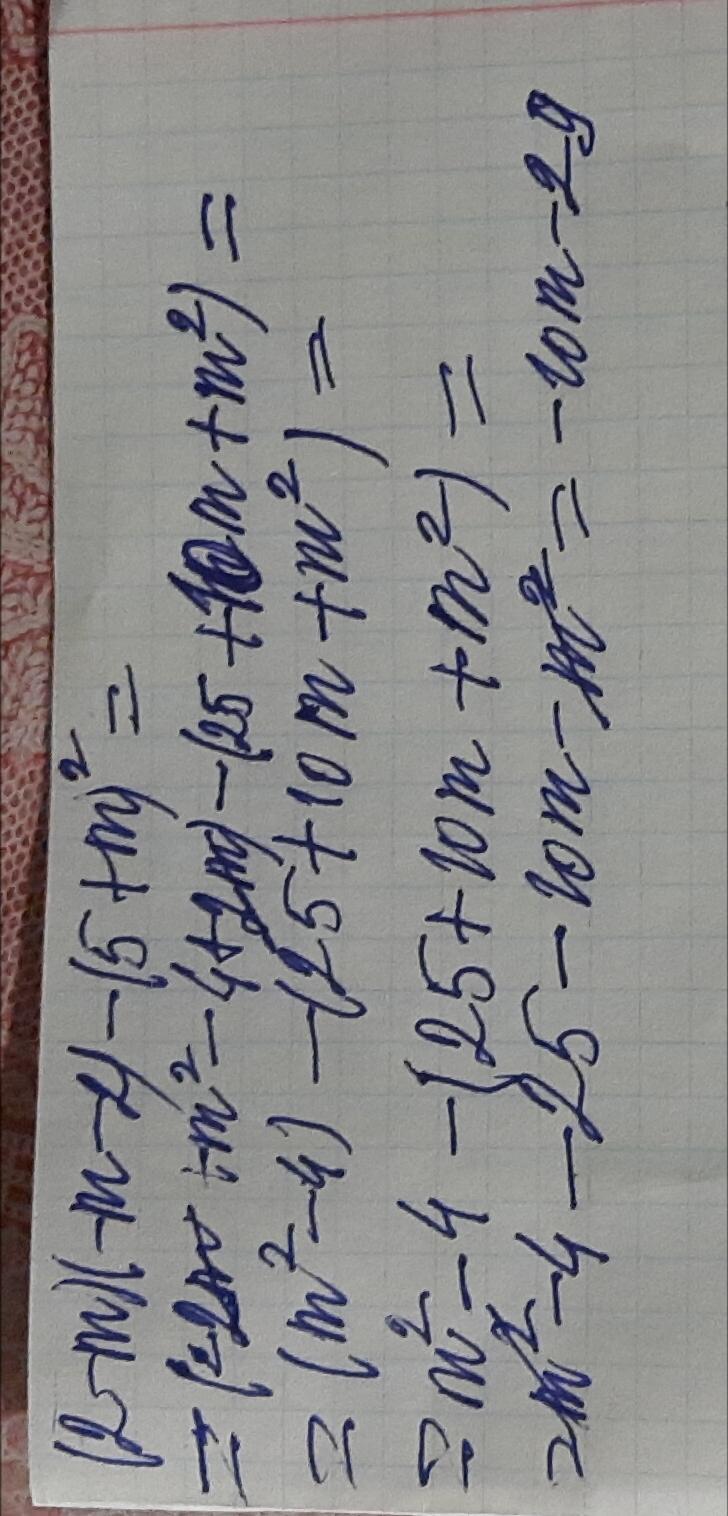 (2-m)(-m-2)-(5+m)² =
= (-2m+m²-4+2m)-(25+10m+m²) =
= (m²-4)-(25+10m+m²) =
= m²-4-(25+10m+m²) =
= m²-4-25-10m-m² = -10m-29